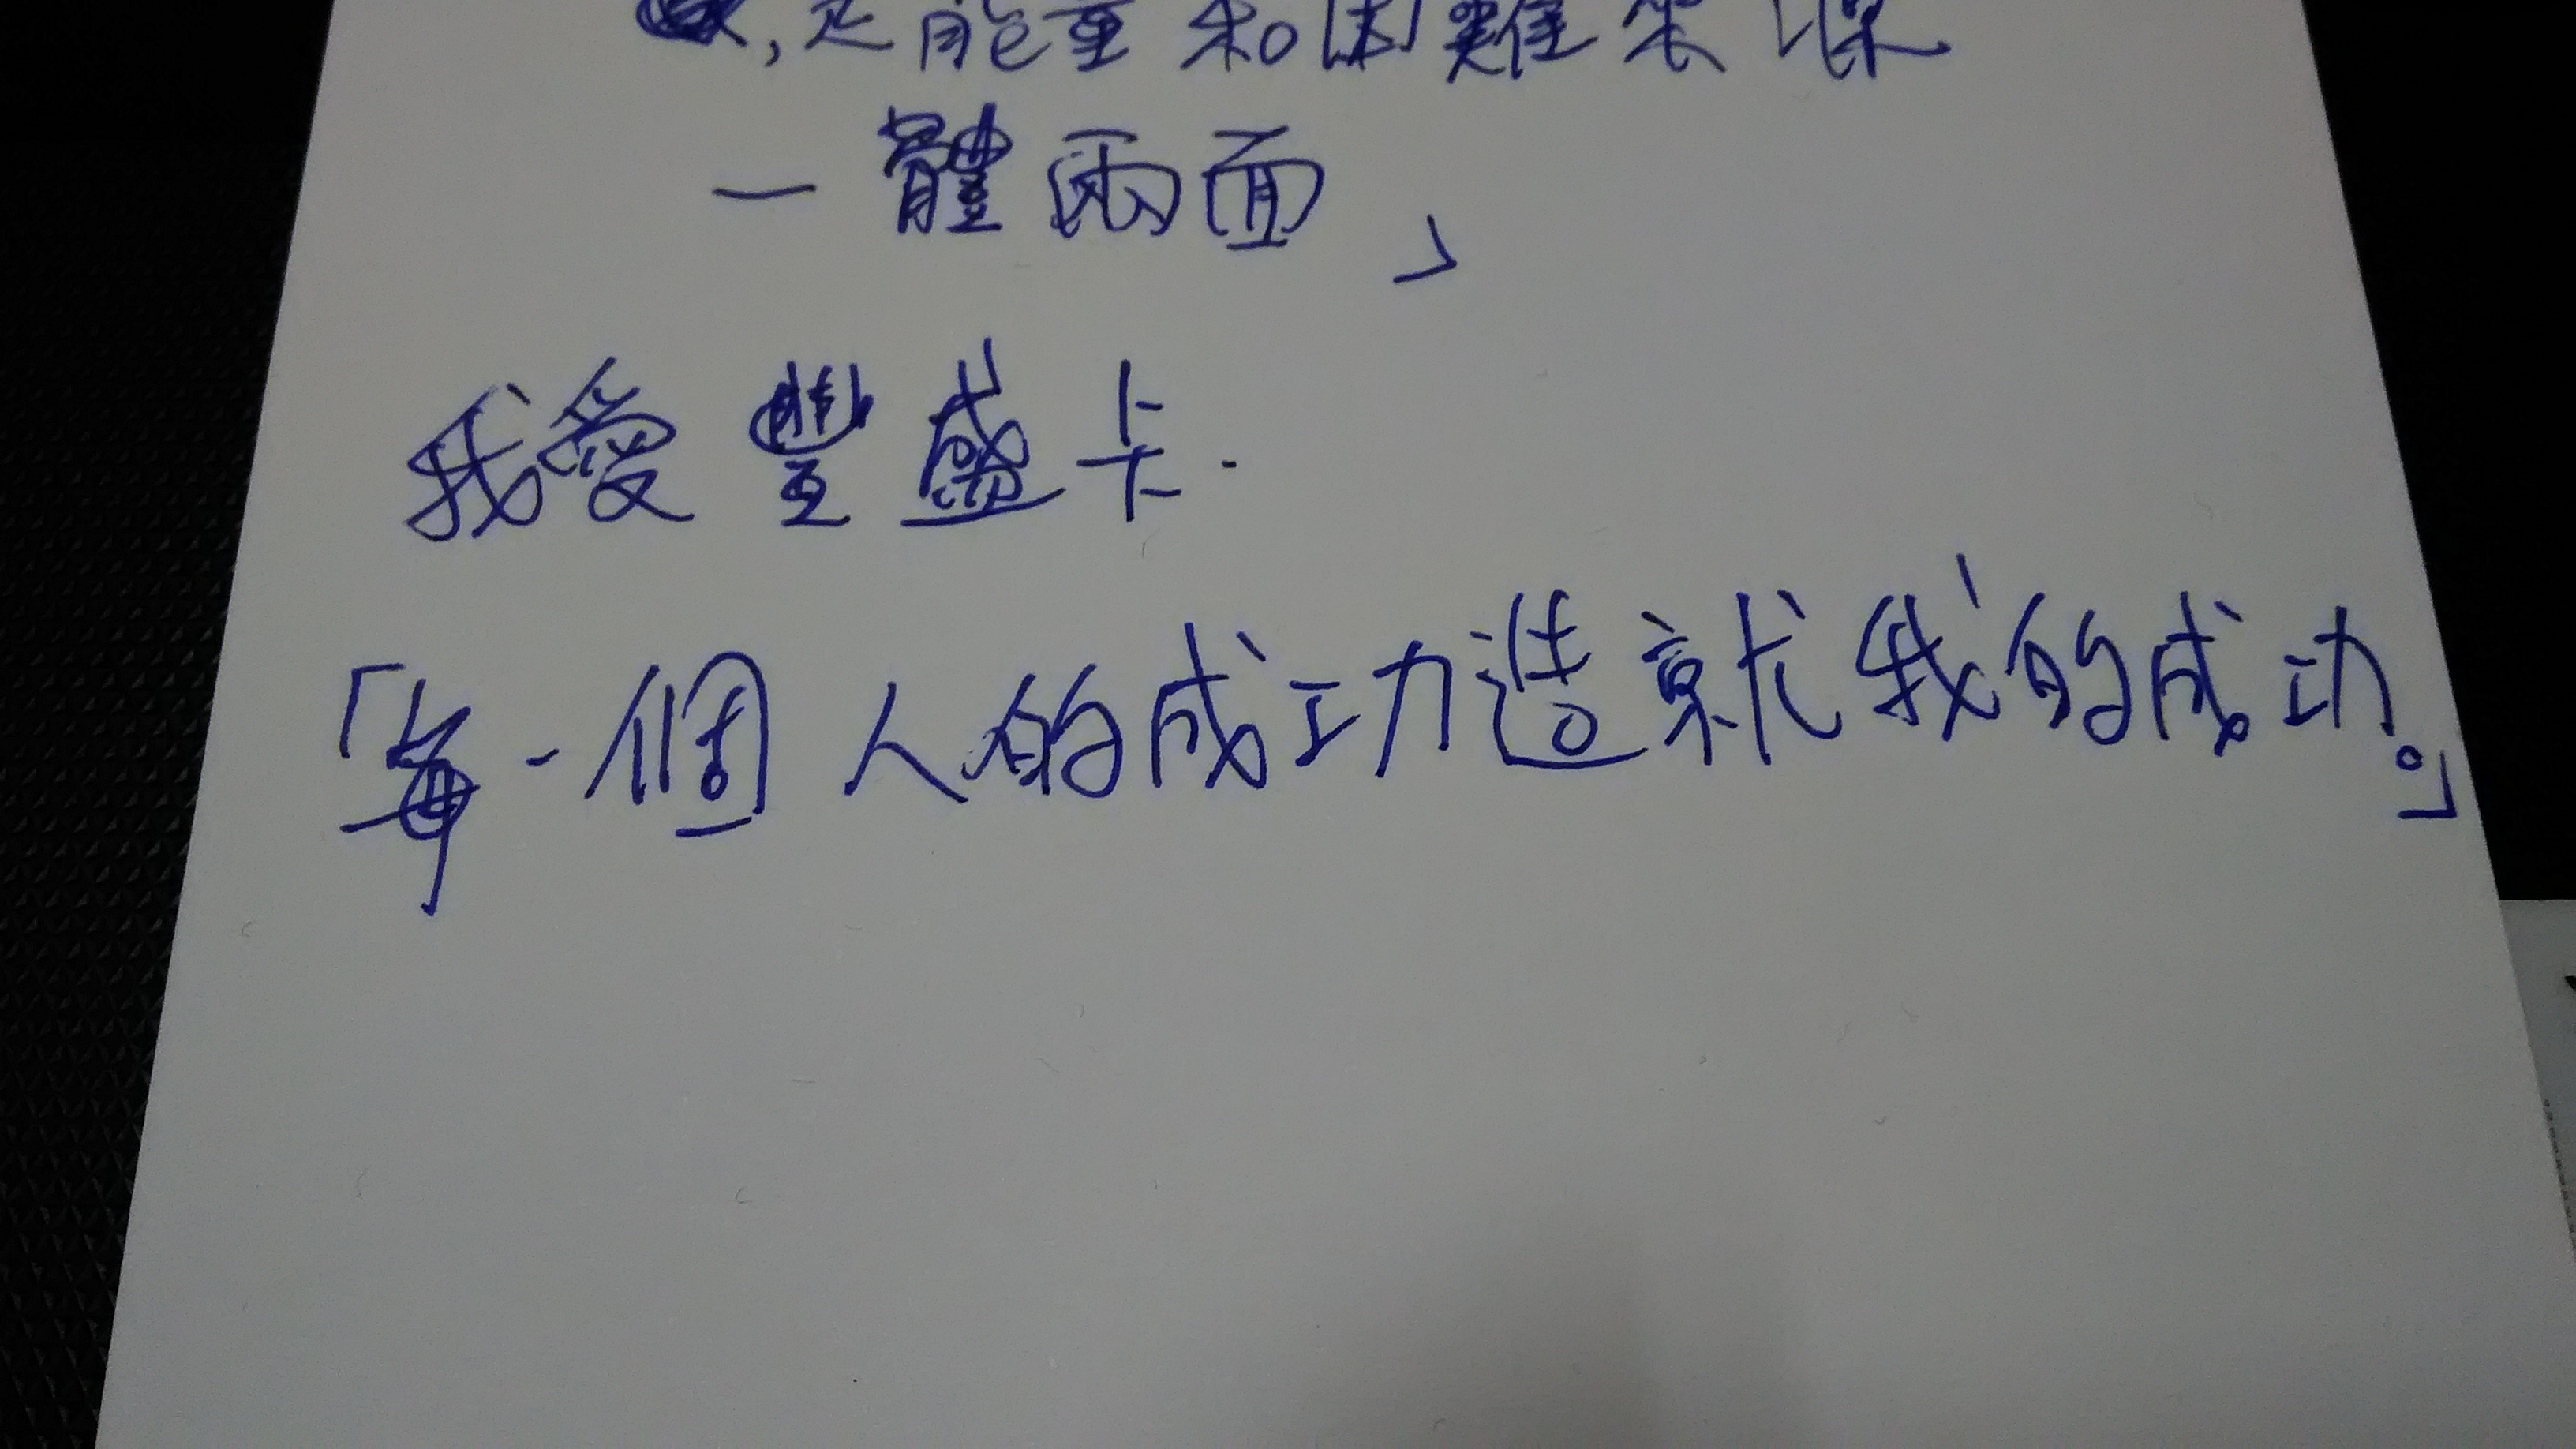 ,是能量和困難來場
一體兩面」
我愛豐盛卡.
「每一個人的成功造就我的成功。」